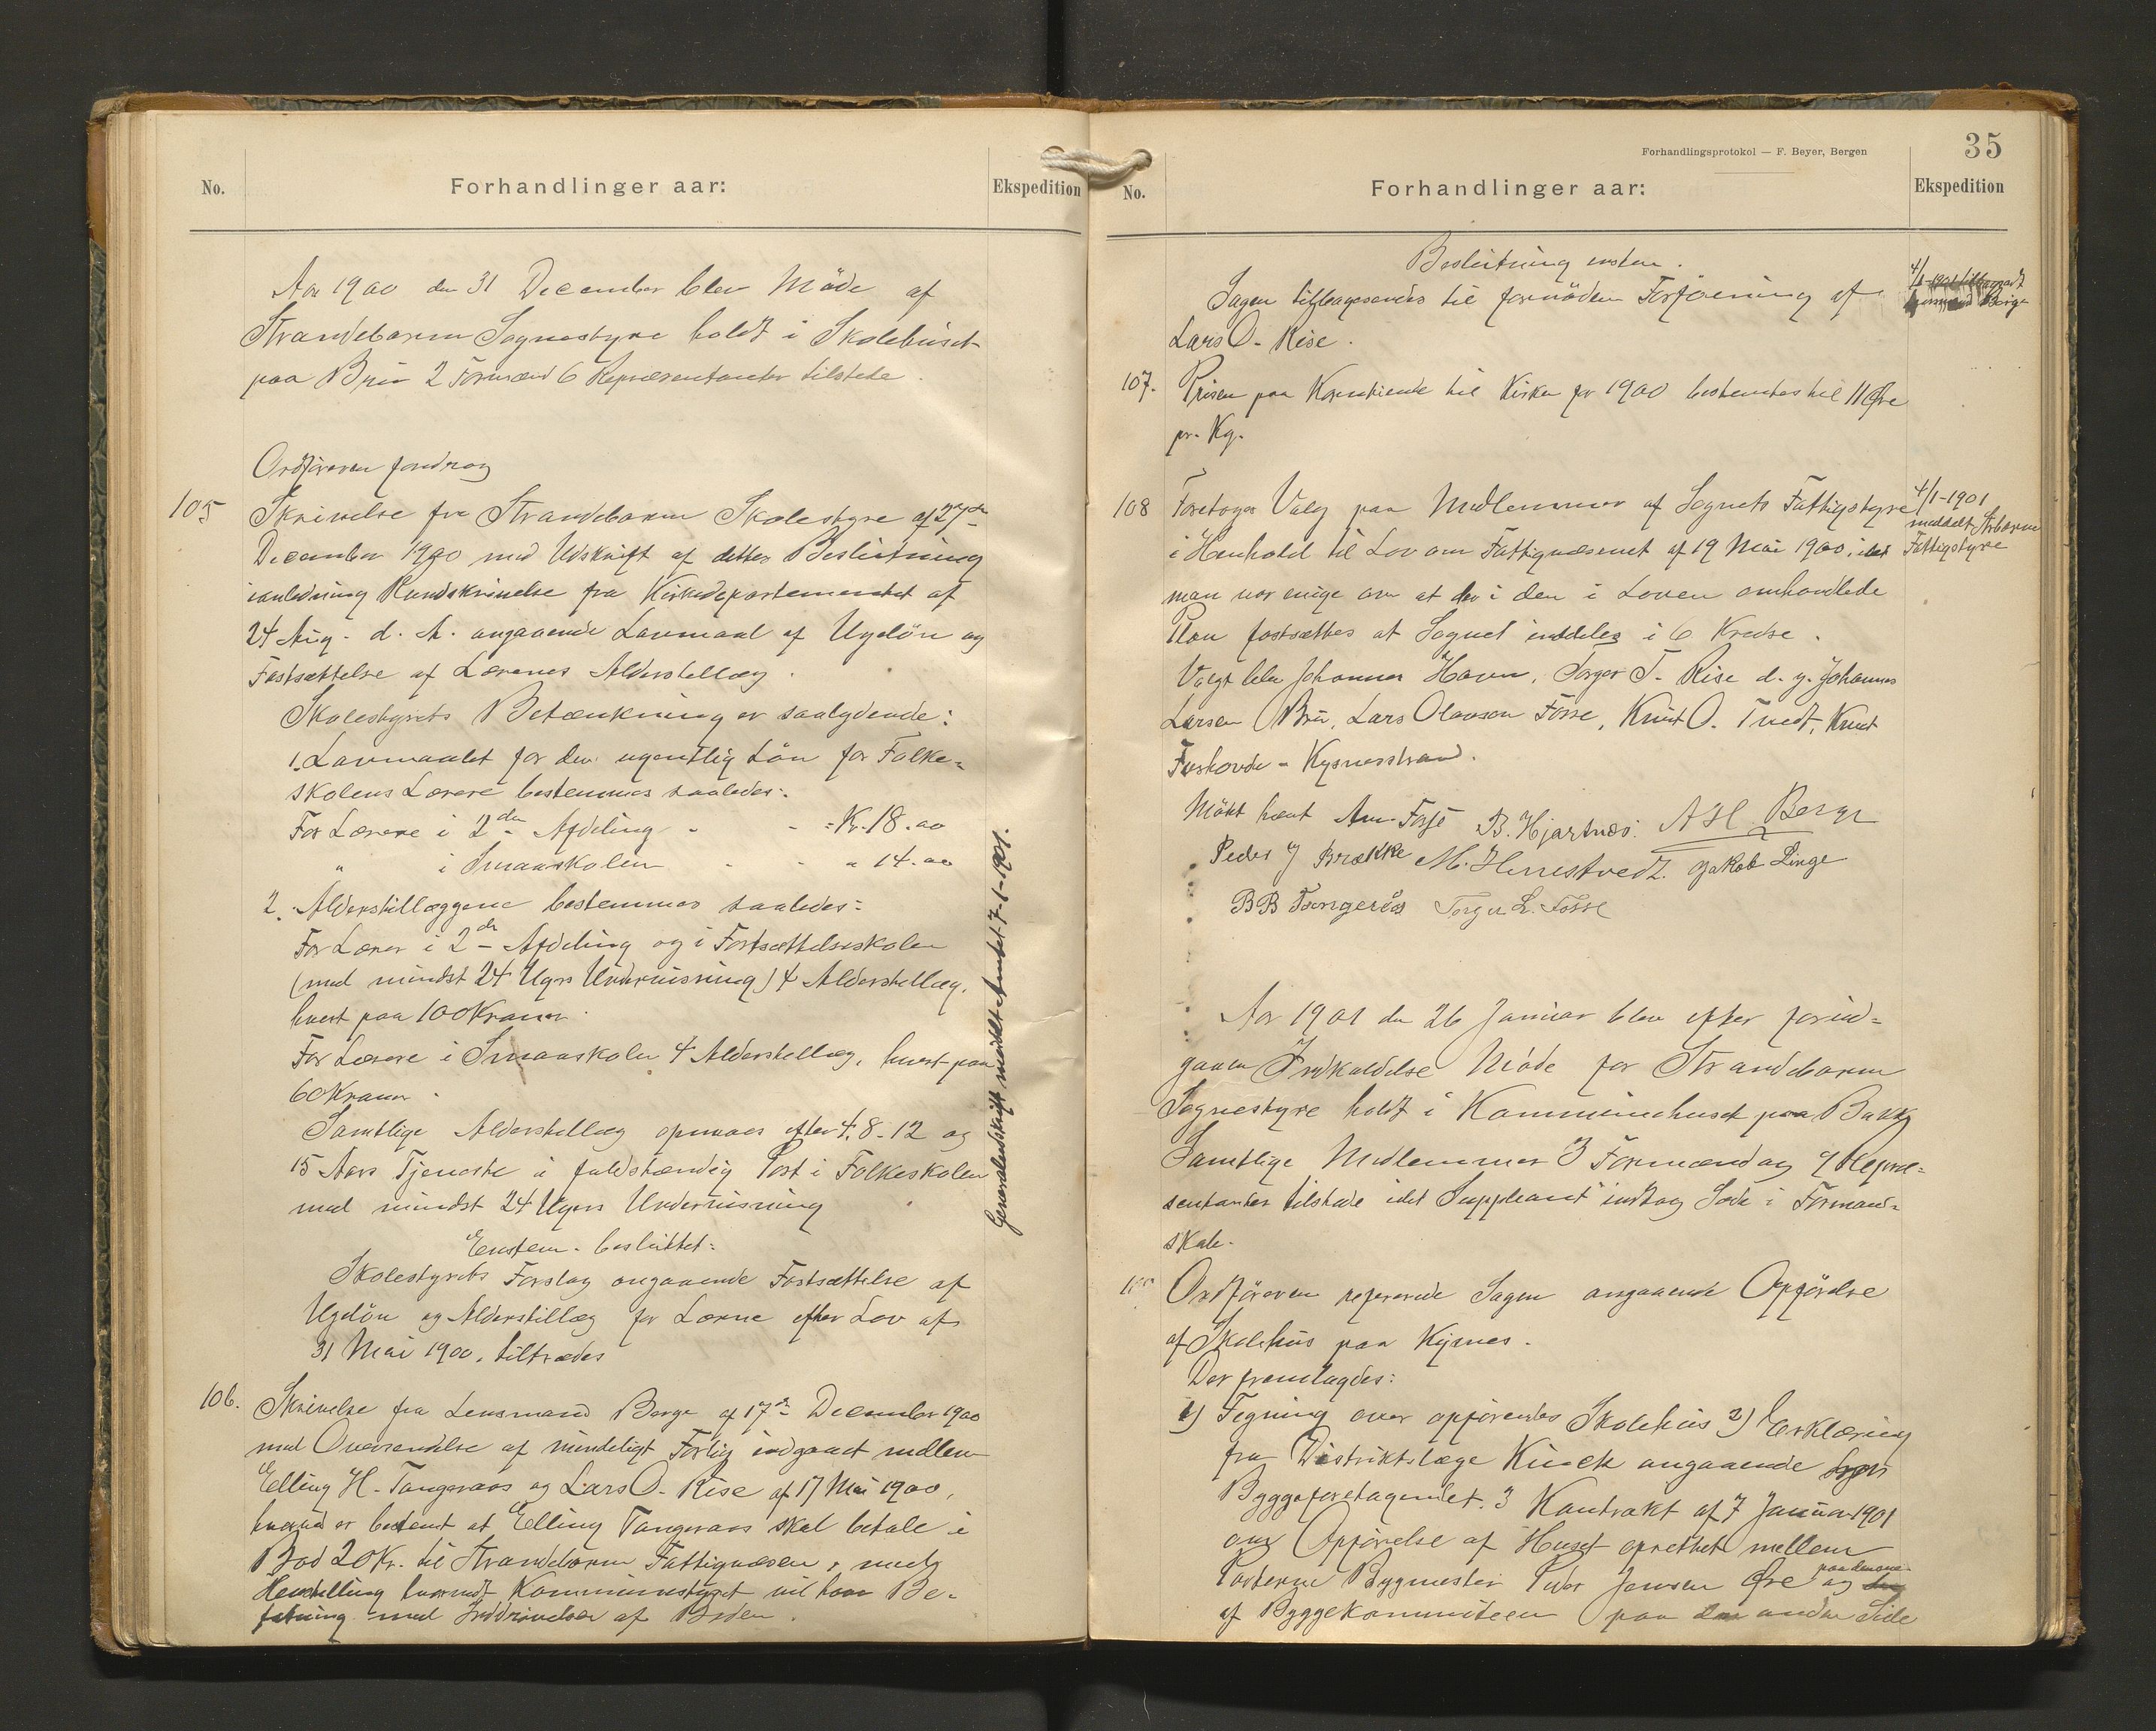 No.
Forhandlinger aar:
Ekspedition
Aar 1900 den 31 December blev Möde af
Strandebarm Sognestyre holdt i Skolehuset
paa Bru 2 Formænd 6 Repræsentanter tilstede.
Ordföreren foredrog
105 Skrivelse fra Strandebarm Skolestyre af 27de
December 1900 med Udskrift af dettes Beslutning
ianledning Rundskrivelse fra Kirkedepartementet af
24 Aug. d. A. angaaende Lavmaal af Ugelön og
Fastsættelse af Lærernes Alderstillæg.
Skolestyrets Betænkning er saalydende:
1. Lavmaalet for den ugentlig Lön for Folke-
skolens Lærere bestemmes saaledes:
For Lærere i 2den Afdeling - - = Kr. 18.00
" i Smaaskolen - - " 14.00
2. Alderstillæggene bestemmes saaledes:
For Lærer i 2den Afdeling og i Fortsættelsesskolen
(med mindst 24 Ugers Undervisning) 4 Alderstillæg,
hvert paa 100 Kroner.
For Lærere i Smaaskolen 4 Alderstillæg, hvert paa
60 Kroner.
Samtlige Alderstillæg opnaaes efter 4, 8, 12 og
15 Aars Tjeneste i fuldstændig Post i Folkeskolen
med mindst 24 Ugers Undervisning
Enstem. besluttet:
Skolestyrets Forslag angaaende Fastsættelse af
Ugelön og Alderstillæg for Lærne efter Lov af
31 Mai 1900, tiltrædes
Generalendskrift meddelt Amtet 7-1-1901.
106. Skrivelse fra Lensmand Berge af 17de December 1900
med Oversendelse af mindeligt Forlig indgaaet mellem
Elling H. Tangeraas og Lars O. Rise af 17 Mai 1900,
hvorved er bestemt at Elling Tangeraas skal betale i
Bod 20 Kr. til Strandebarm Fattigvæsen, med
Henstilling hvorvidt Kommunestyret vil have Be-
fatning med Inddrivelsen af Boden.
Forhandlingsprotokol — F. Beyer, Bergen
35
No.
Forhandlinger aar:
Ekspedition
Beslutning enstem.
Sagen tilbagesendes til fornöden Forföining af
Lars O. Rise.
4/1-1901 tilbagesendt
Lensmand Berge
107. Prisen paa Korntiende til Kirken for 1900 bestemtes til 11 Öre
pr. Kg.
108 Foretoges Valg paa Medlemmer af Sognets Fattigstyre
i Henhold til Lov om Fattigvæsenet af 19 Mai 1900, idet
man var enige om at der i den i Loven omhandlede
Plan fastsættes at Sognet inddeles i 6 Kredse.
Valgt blev Johannes Havn, Torger T. Rise d. y. Johannes
Larsen Bru, Lars Olavson Fosse, Knut O. Tvedt, Knut
Kysnesstrand.
4/1-1901
meddelt Stbarm
Fattigstyre
Mökt hævt B. Hjartnes. A H Berge
Peder J Brække M. Hennestvedt. Jakob Linge
B B Tangerås Torger L. Fosse
Aar 1901 den 26 Januar blev efter forud-
gaaen Indkaldelse Möde for Strandebarm
Sognestyre holdt i Kommunehuset paa Bakke
Samtlige Medlemmer 3 Formænd og 9 Repræ-
sentanter tilstede idet Suppleant indtog Sæde i Formand-
skab.
Ordföreren refererede Sagen angaaende Opförelse
af Skolehus paa Kysnes.
Der fremlagdes:
1) Tegning over opförendes Skolehus 2) Erklæring
fra Distriktslæge Kinck angaaende
Byggeforetagendet. 3 Kontrakt af 7 Januar 1901
om Opförelse af Huset oprettet mellem
Parterne Bygmester Peder Jensen Öre paa den ene og
af Byggekommiteen paa den anden Side